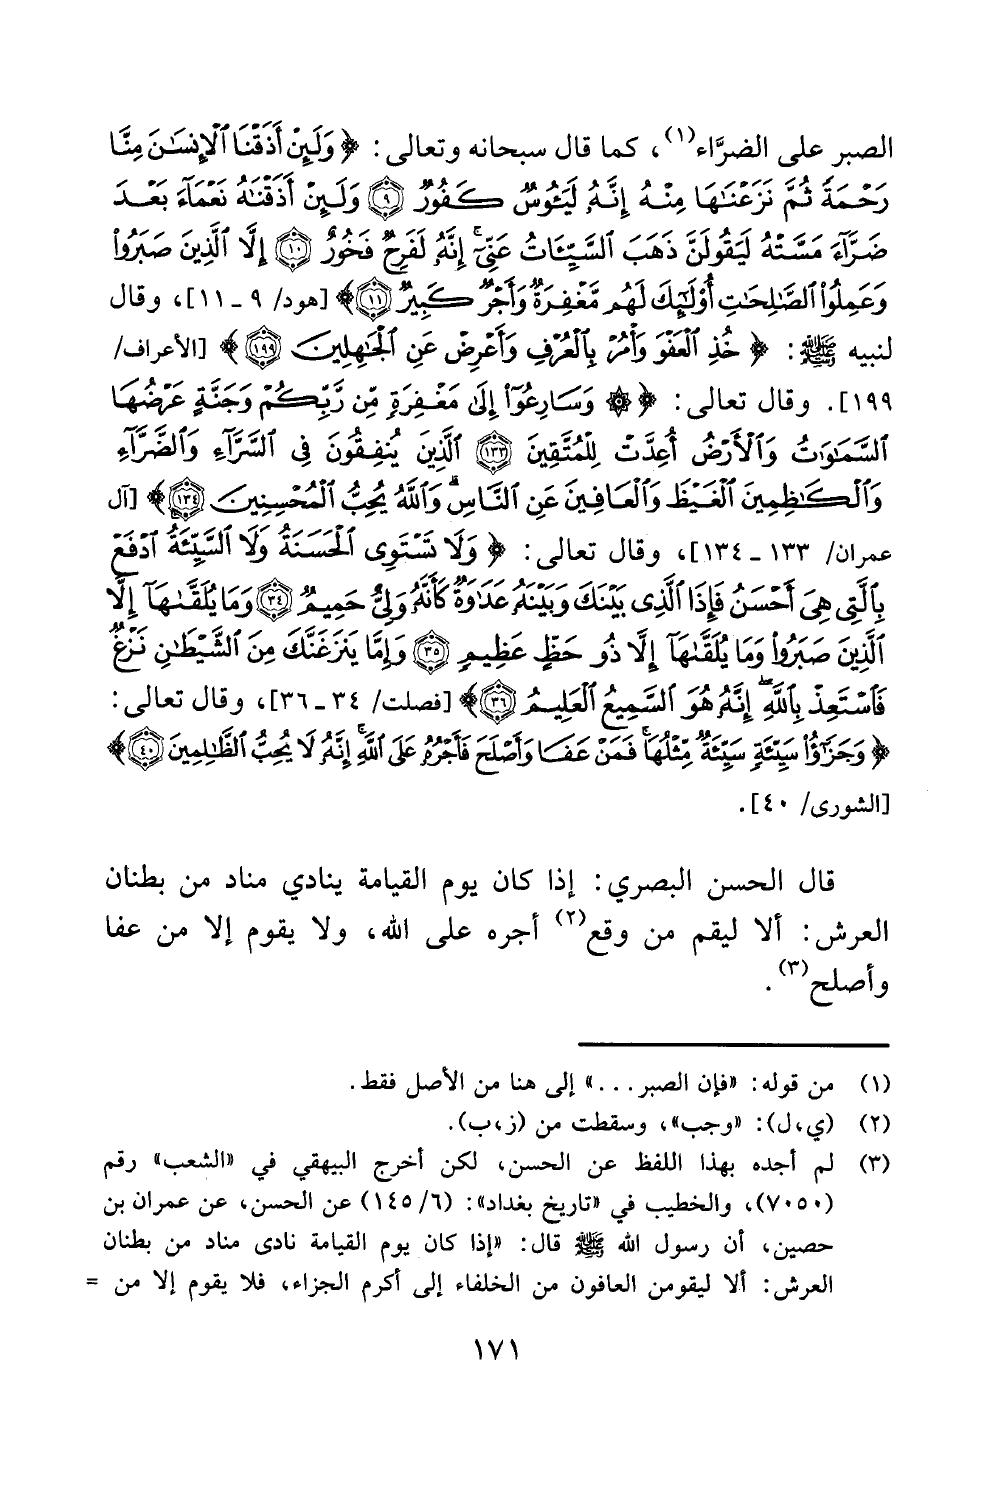 الصبر على الضرَّاء(١)، كما قال سبحانه وتعالى: ﴿وَلَئِنْ أَذَقْنَا ٱلْإِنسَٰنَ مِنَّا
رَحْمَةً ثُمَّ نَزَعْنَٰهَا مِنْهُ إِنَّهُۥ لَيَـُٔوسٌ كَفُورٌ ۝٩ وَلَئِنْ أَذَقْنَٰهُ نَعْمَآءَ بَعْدَ
ضَرَّآءَ مَسَّتْهُ لَيَقُولَنَّ ذَهَبَ ٱلسَّيِّـَٔاتُ عَنِّىٓ ۚ إِنَّهُۥ لَفَرِحٌ فَخُورٌ ۝١٠ إِلَّا ٱلَّذِينَ صَبَرُوا۟
وَعَمِلُوا۟ ٱلصَّٰلِحَٰتِ أُو۟لَٰٓئِكَ لَهُم مَّغْفِرَةٌ وَأَجْرٌ كَبِيرٌ ۝١١﴾ [هود/ ٩ ـ ١١]، وقال
لنبيه ﷺ: ﴿خُذِ ٱلْعَفْوَ وَأْمُرْ بِٱلْعُرْفِ وَأَعْرِضْ عَنِ ٱلْجَٰهِلِينَ ۝١٩٩﴾ [الأعراف/
١٩٩]. وقال تعالى: ﴿۞ وَسَارِعُوٓا۟ إِلَىٰ مَغْفِرَةٍ مِّن رَّبِّكُمْ وَجَنَّةٍ عَرْضُهَا
ٱلسَّمَٰوَٰتُ وَٱلْأَرْضُ أُعِدَّتْ لِلْمُتَّقِينَ ۝١٣٣ ٱلَّذِينَ يُنفِقُونَ فِى ٱلسَّرَّآءِ وَٱلضَّرَّآءِ
وَٱلْكَٰظِمِينَ ٱلْغَيْظَ وَٱلْعَافِينَ عَنِ ٱلنَّاسِ ۗ وَٱللَّهُ يُحِبُّ ٱلْمُحْسِنِينَ ۝١٣٤﴾ [آل
عمران/ ١٣٣ ـ ١٣٤]، وقال تعالى: ﴿وَلَا تَسْتَوِى ٱلْحَسَنَةُ وَلَا ٱلسَّيِّئَةُ ۚ ٱدْفَعْ
بِٱلَّتِى هِىَ أَحْسَنُ فَإِذَا ٱلَّذِى بَيْنَكَ وَبَيْنَهُۥ عَدَٰوَةٌ كَأَنَّهُۥ وَلِىٌّ حَمِيمٌ ۝٣٤ وَمَا يُلَقَّىٰهَآ إِلَّا
ٱلَّذِينَ صَبَرُوا۟ وَمَا يُلَقَّىٰهَآ إِلَّا ذُو حَظٍّ عَظِيمٍ ۝٣٥ وَإِمَّا يَنزَغَنَّكَ مِنَ ٱلشَّيْطَٰنِ نَزْغٌ
فَٱسْتَعِذْ بِٱللَّهِ ۖ إِنَّهُۥ هُوَ ٱلسَّمِيعُ ٱلْعَلِيمُ ۝٣٦﴾ [فصلت/ ٣٤ ـ ٣٦]، وقال تعالى:
﴿وَجَزَٰٓؤُا۟ سَيِّئَةٍ سَيِّئَةٌ مِّثْلُهَا ۖ فَمَنْ عَفَا وَأَصْلَحَ فَأَجْرُهُۥ عَلَى ٱللَّهِ ۚ إِنَّهُۥ لَا يُحِبُّ ٱلظَّٰلِمِينَ ۝٤٠﴾
[الشورى/ ٤٠].
قال الحسن البصري: إذا كان يوم القيامة ينادي مناد من بطنان
العرش: ألا ليقم من وقع(٢) أجره على الله، ولا يقوم إلا من عفا
وأصلح(٣).
(١) من قوله: «فإن الصبر...» إلى هنا من الأصل فقط.
(٢) (ي،ل): «وجب»، وسقطت من (ز،ب).
(٣) لم أجده بهذا اللفظ عن الحسن، لكن أخرج البيهقي في «الشعب» رقم
(٧٠٥٠)، والخطيب في «تاريخ بغداد»: (٦/ ١٤٥) عن الحسن، عن عمران بن
حصين، أن رسول الله ﷺ قال: «إذا كان يوم القيامة نادى مناد من بطنان
العرش: ألا ليقومن العافون من الخلفاء إلى أكرم الجزاء، فلا يقوم إلا من =
١٧١